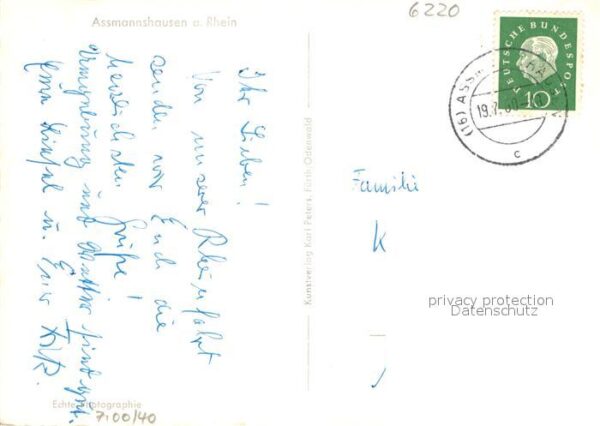 Assmannshausen a. Rhein
6220
DEUTSCHE BUNDESPOST
10
(16) ASS
19.7.60
c
Ihr Lieben!
Von unserer Rheinfahrt
senden wir Euch die
herzlichsten Grüße!
Umgebung und Wetter sind gut.
u. Euer
Kunstverlag Karl Peters, Fürth Odenwald
Familie
K
privacy protection
Datenschutz
Echte Photographie
7.00/40